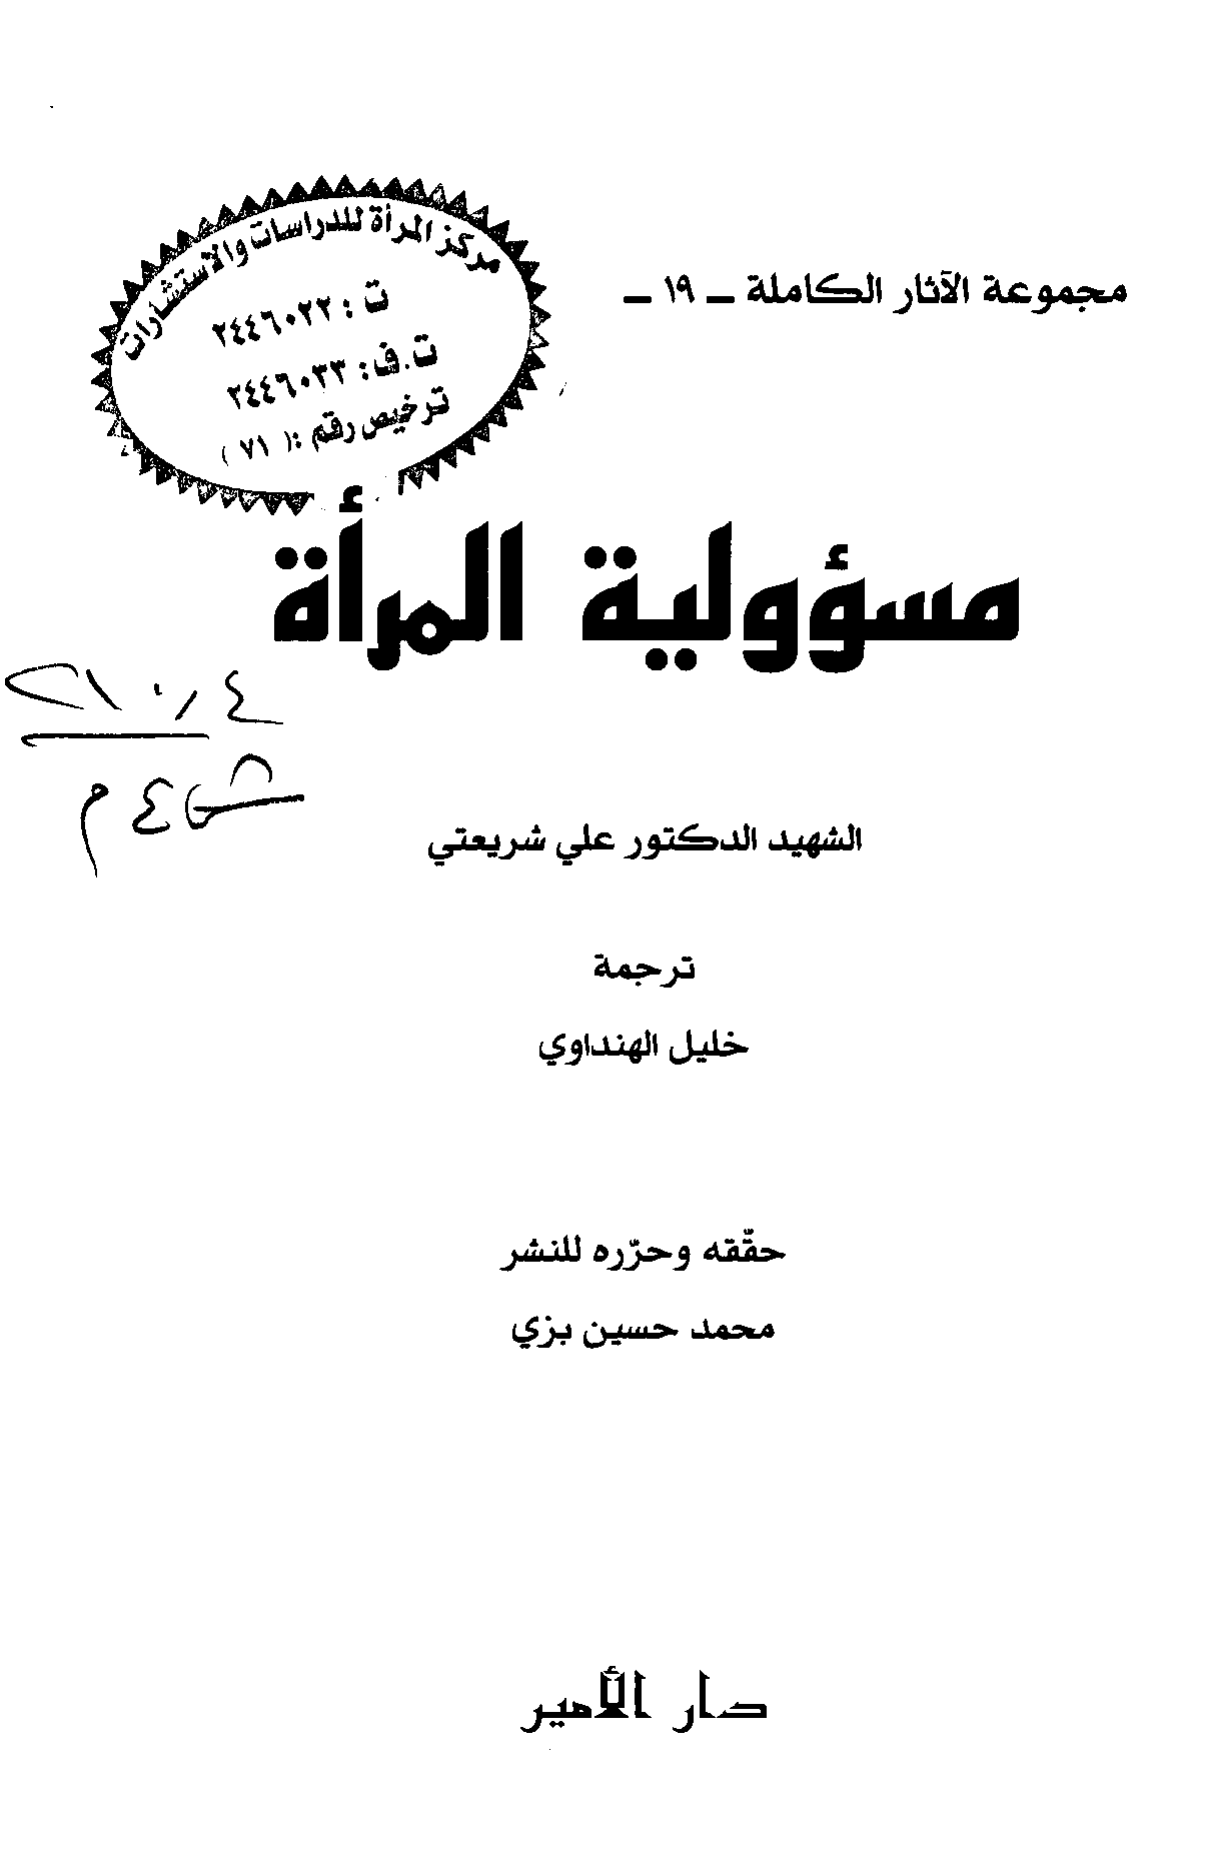 مركز المرأة للدراسات والاستشارات
ت : ٢٤٤٦٠٢٢
ت.ف: ٢٤٤٦٠٣٣
ترخيص رقم :( ٧١ )
مجموعة الآثار الكاملة ــ ١٩ ــ
مسؤولية المرأة
٢١٠,٤
الشهيد الدكتور علي شريعتي
ترجمة
خليل الهنداوي
حقّقه وحرّره للنشر
محمد حسين بزي
دار الأمير